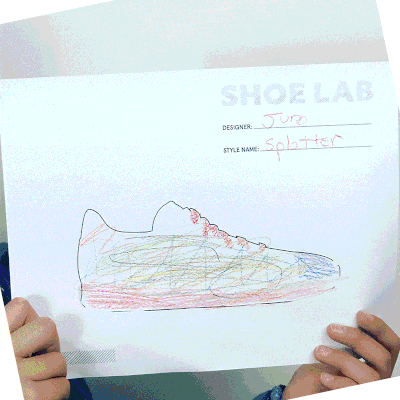 SHOE LAB
DESIGNER: Juro
STYLE NAME: Splatter